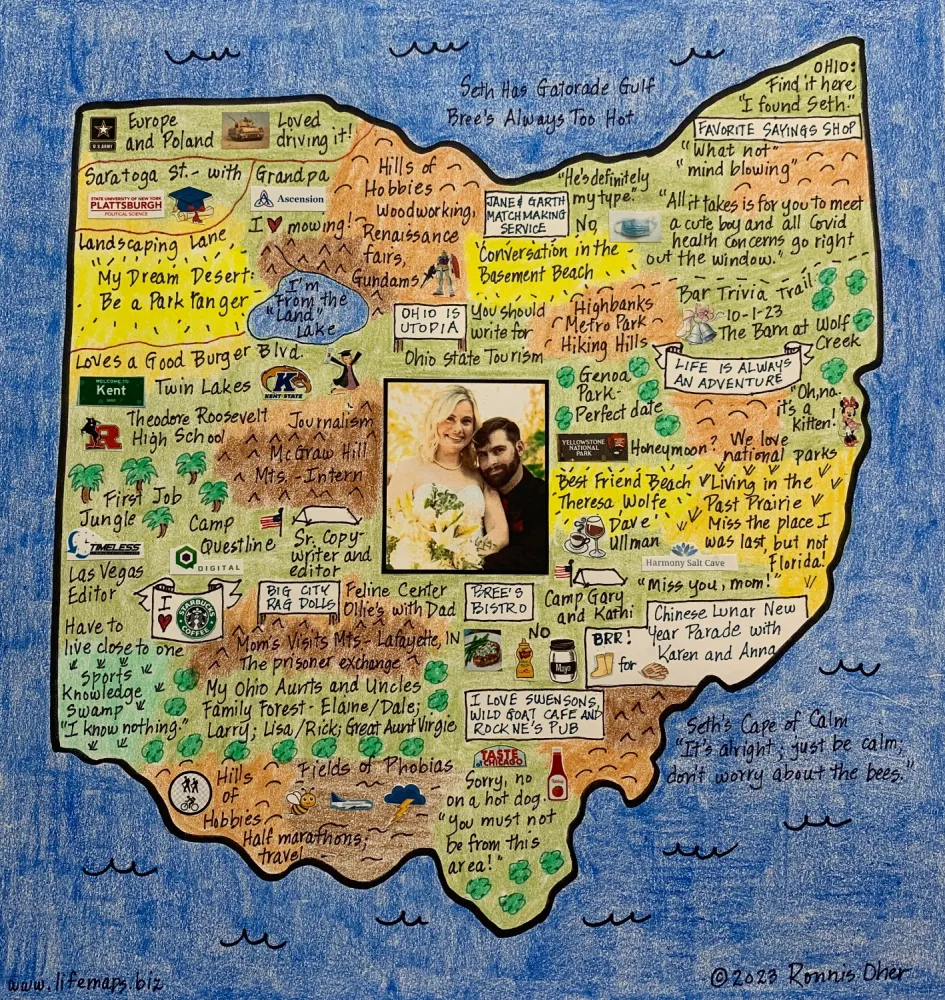 Seth Has Gatorade Gulf
Bree's Always Too Hot
OHIO:
Find it here
"I found Seth."
FAVORITE SAYINGS SHOP
"What not"
"mind blowing"
U.S. ARMY
Europe
and Poland
Loved
driving it!
Saratoga St. - with Grandpa
STATE UNIVERSITY OF NEW YORK
PLATTSBURGH
POLITICAL SCIENCE
Ascension
I ♥ mowing!
Landscaping Lane
"My Dream Desert:
Be a Park Ranger
I'm
From the
"Land"
Lake
Hills of
Hobbies
Woodworking,
Renaissance
fairs,
Gundams
JANE & GARTH
MATCHMAKING
SERVICE
"He's definitely
my type."
No,
"All it takes is for you to meet
a cute boy and all Covid
health concerns go right
out the window."
Conversation in the
Basement Beach
OHIO IS
UTOPIA
You should
write for
Ohio State Tourism
Highbanks
Metro Park
Hiking Hills
Bar Trivia Trail
10-1-23
The Barn at Wolf
Creek
LIFE IS ALWAYS
AN ADVENTURE
Loves a Good Burger Blvd.
WELCOME TO
Kent
Twin Lakes
K
KENT STATE
R
Theodore Roosevelt
High School
Journalism
McGraw Hill
Mts. - Intern
Genoa
Park-
Perfect date
"Oh, no.
it's a
kitten!
YELLOWSTONE
NATIONAL
PARK
Honeymoon?
We love
national parks
Best Friend Beach
Theresa Wolfe
Dave
Ullman
Living in the
Past Prairie
Miss the place I
was last, but not
Florida!
Harmony Salt Cave
"Miss you, mom!"
First Job
Jungle
TIMELESS
Las Vegas
Editor
Camp
Questline
Q
DIGITAL
Sr. Copy-
writer and
editor
Camp Gary
and Kathi
I
♥
STARBUCKS
COFFEE
Have to
live close to one
BIG CITY
RAG DOLLS
Feline Center
Ollie's with Dad
Mom's Visits Mts. - Lafayette, IN
The prisoner exchange
BREE'S
BISTRO
NO
Mayo
BRR!
for
Chinese Lunar New
Year Parade with
Karen and Anna
Sports
Knowledge
Swamp
"I know nothing."
My Ohio Aunts and Uncles
Family Forest - Elaine/Dale;
Larry; Lisa/Rick; Great Aunt Virgie
I LOVE SWENSONS,
WILD GOAT CAFE AND
ROCKNE'S PUB
Seth's Cape of Calm
"It's alright; just be calm;
don't worry about the bees."
Hills
of
Hobbies
Half marathons;
travel
Fields of Phobias
TASTE
CHICAGO
Sorry, no
on a hot dog.
"You must not
be from this
area!"
www.lifemaps.biz
©2023 Ronnis Oher